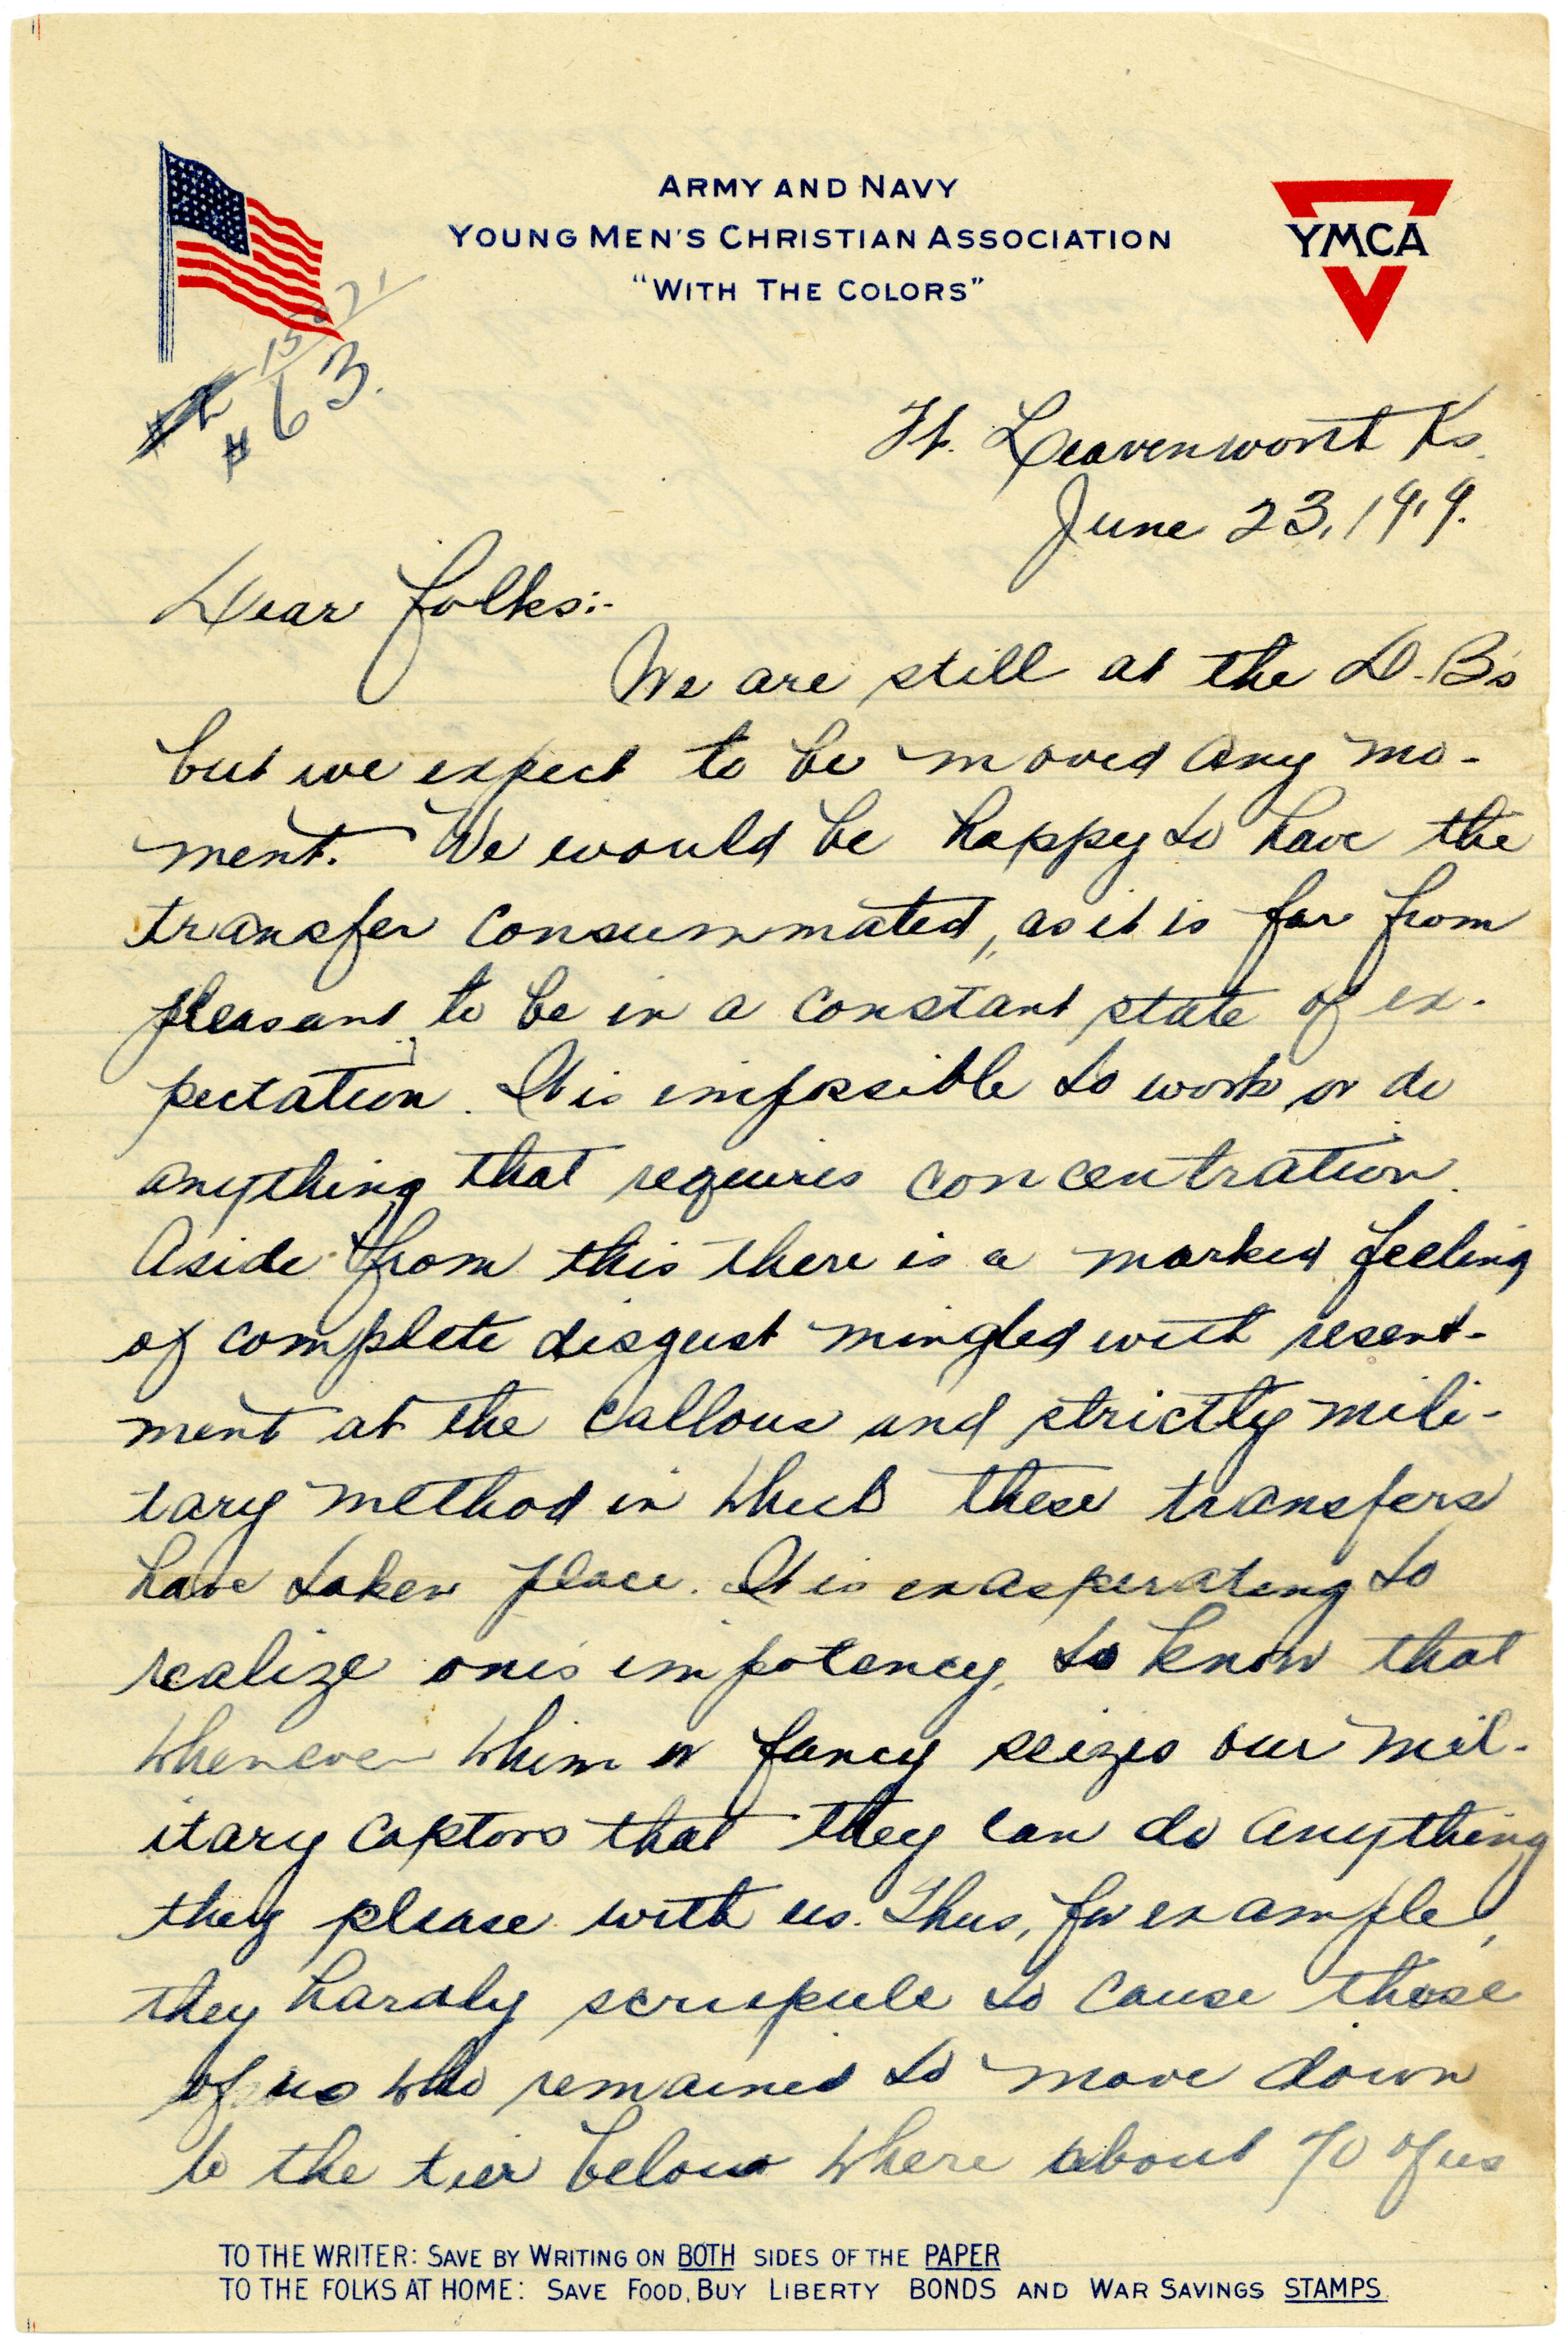 ARMY AND NAVY
YOUNG MEN'S CHRISTIAN ASSOCIATION
"WITH THE COLORS"
YMCA
15021
#63.
Ft. Leavenwort Ks.
June 23, 1919.
Dear folks:-
We are still at the D.B's
but we expect to be moved any mo-
ment. We would be happy to have the
transfer consummated, as it is far from
pleasant to be in a constant state of ex-
pectation. It is impossible to work or do
anything that requires concentration.
Aside from this there is a marked feeling
of complete disgust mingled with resent-
ment at the callous and strictly mili-
tary method in which these transfers
have taken place. It is exasperating to
realize one's impotency, to know that
whenever whim or fancy seizes our mil-
itary captors that they can do anything
they please with us. Thus, for example,
they hardly scrupule to cause those
of us who remained to move down
to the tier below where about 70 of us
TO THE WRITER: SAVE BY WRITING ON BOTH SIDES OF THE PAPER
TO THE FOLKS AT HOME: SAVE FOOD, BUY LIBERTY BONDS AND WAR SAVINGS STAMPS